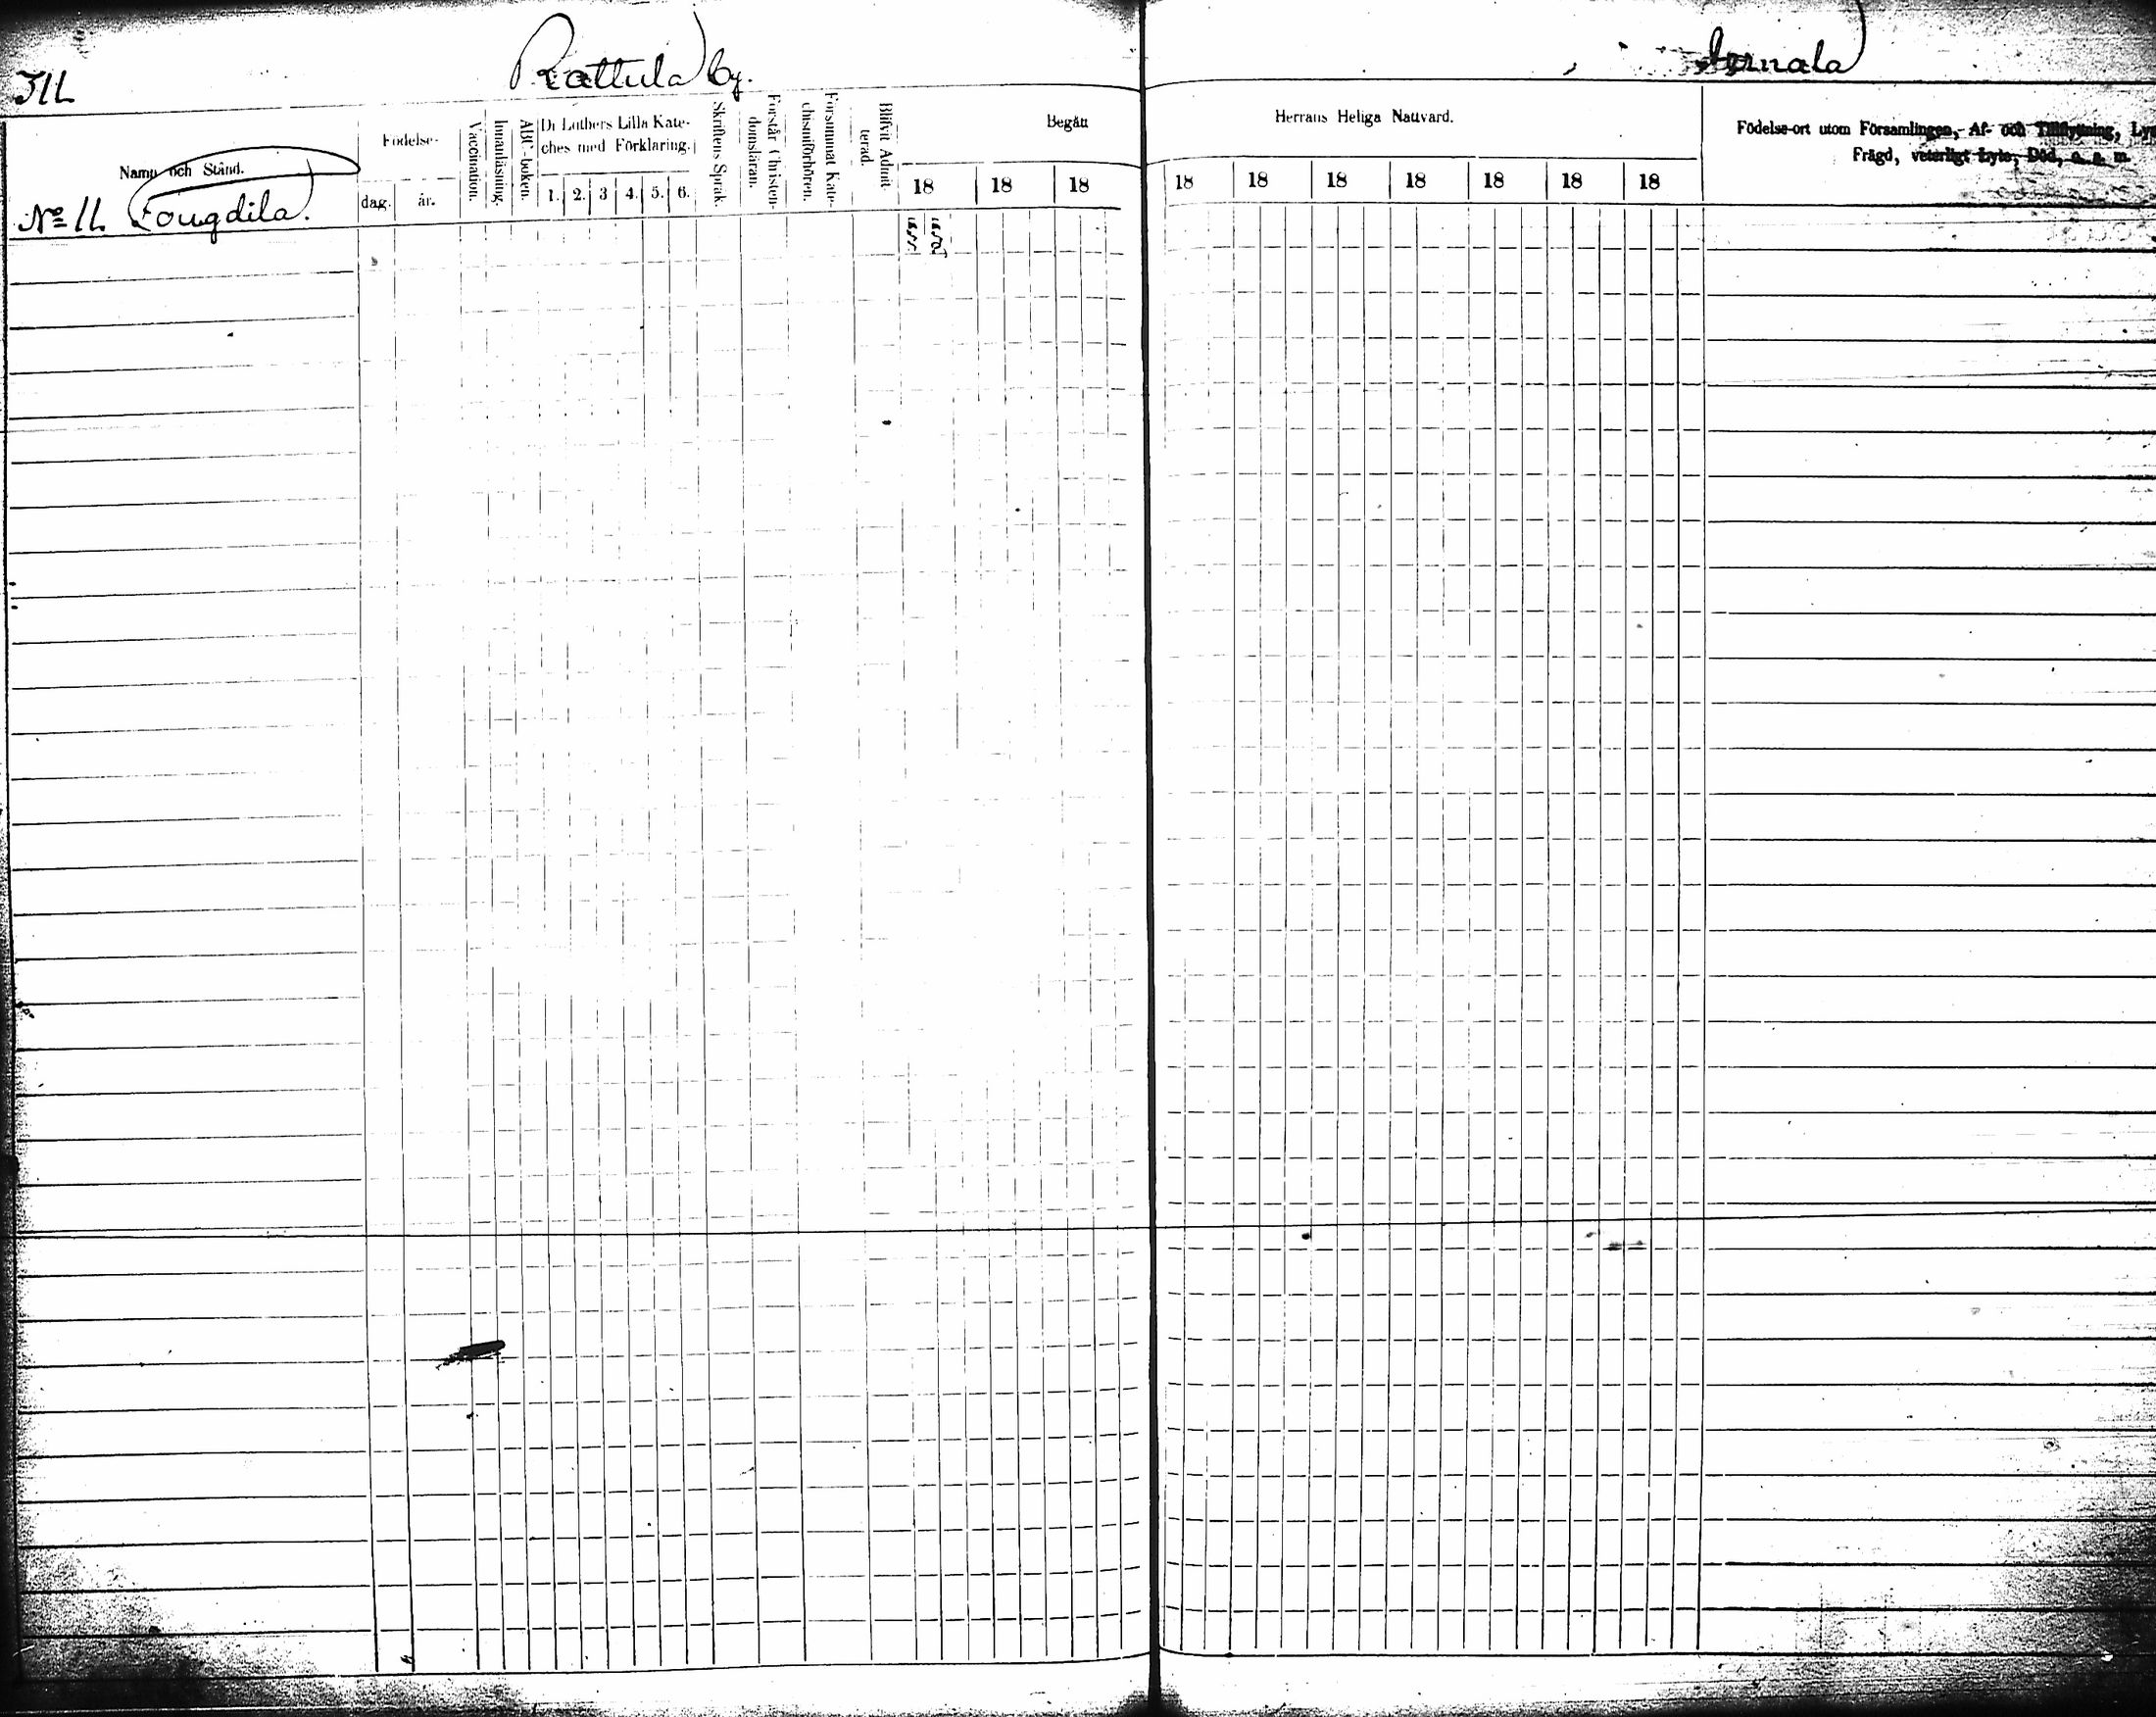 311.
Rattula by.
Namn och Stånd.
Födelse-
dag.
år.
Vaccination.
Innanläsning.
ABC-boken.
Dr Luthers Lilla Kate-
ches med Förklaring.
1. 2. 3 4. 5. 6.
Skriftens Språk.
Förstår Christen-
domsläran.
Försummat Kate-
chismiförhören.
Blifvit Admit-
terad.
Begått
18 18 18
Nº 11. Fougdila.
Herrans Heliga Nattvard.
18 18 18 18 18 18 18
Födelse-ort utom Församlingen, Af- och Tillflyttning,
Frägd, veterligt Lyte, Död, o. s. m.